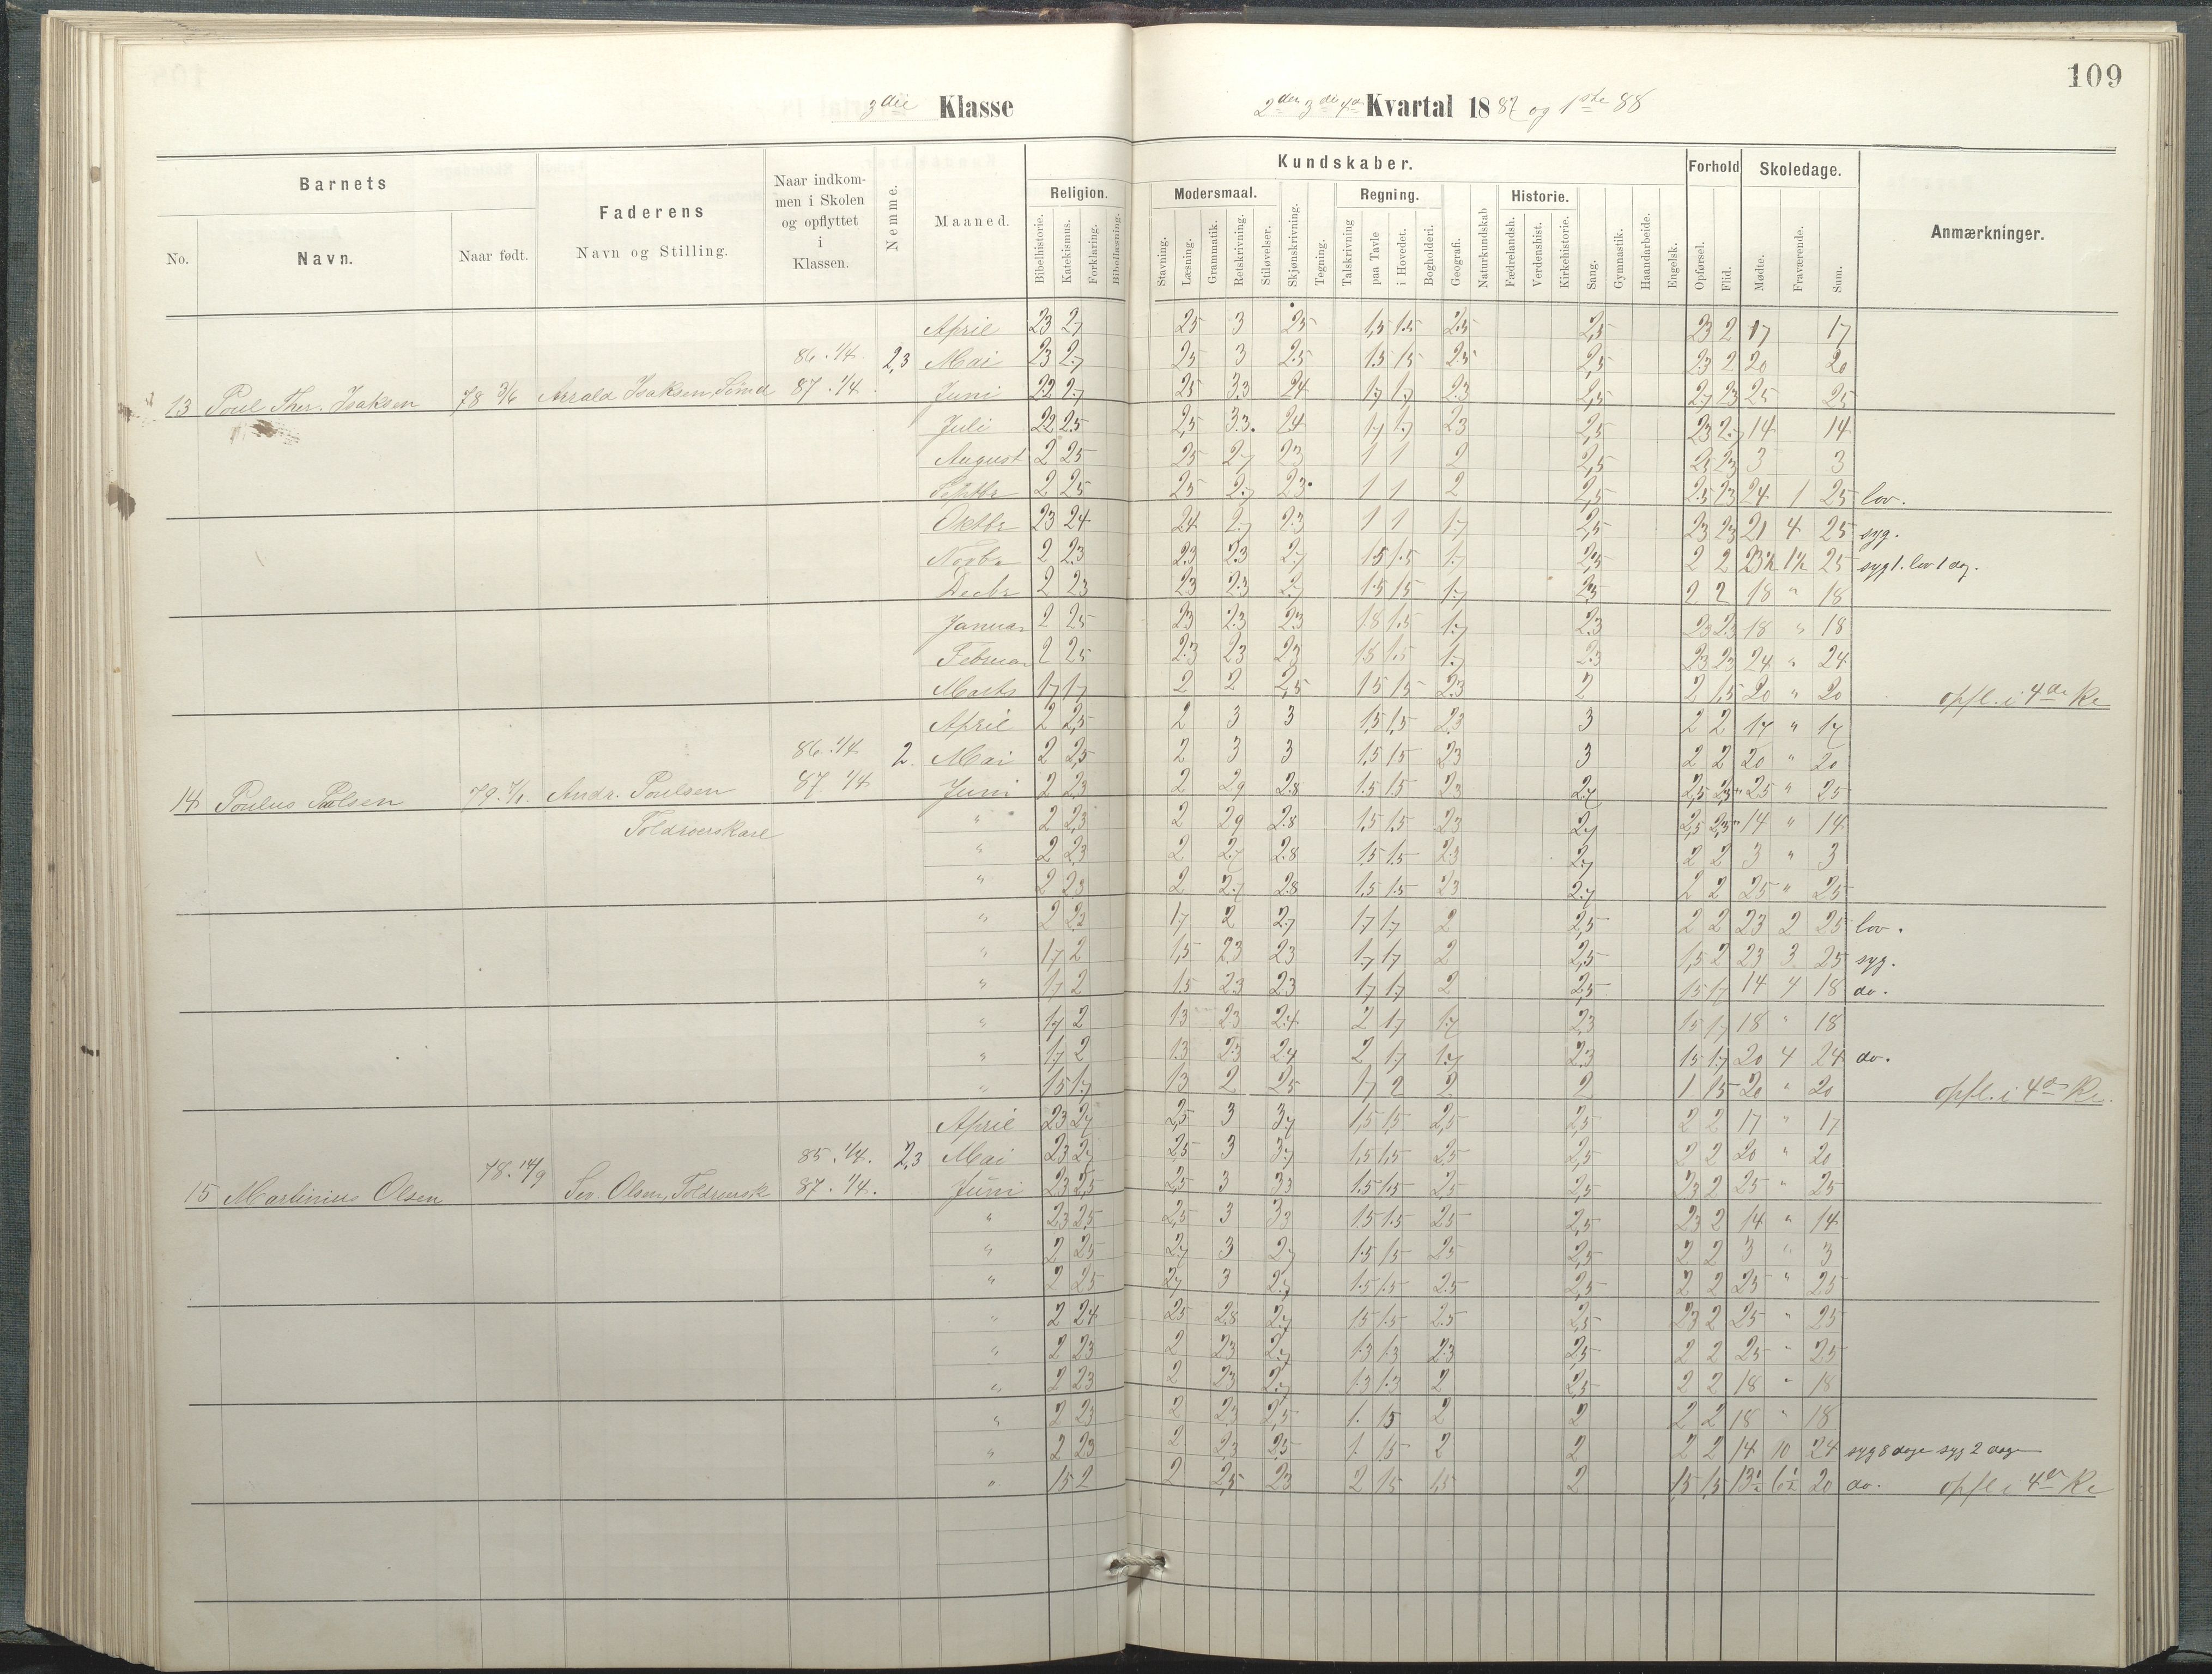 109
3die Klasse
2den 3die 4de Kvartal 1887 og 1ste 88
Barnets
No.
Navn.
Naar født.
Faderens
Navn og Stilling.
Naar indkom-
men i Skolen
og opflyttet
i
Klassen.
Nemme.
Maaned.
Kundskaber.
Religion.
Bibelhistorie.
Katekismus.
Forklaring.
Bibellæsning.
Modersmaal.
Stavning.
Læsning.
Grammatik.
Retskrivning.
Stiløvelser.
Skjønskrivning.
Tegning.
Regning.
Talskrivning
paa Tavle
i Hovedet.
Bogholderi.
Geografi.
Naturkundskab
Historie.
Fædrelandsh.
Verdenshist.
Kirkehistorie.
Sang.
Gymnastik.
Haandarbeide.
Engelsk.
Forhold
Opførsel.
Flid.
Skoledage.
Mødte.
Fraværende.
Sum.
Anmærkninger.
April 23 27 25 3 25 1,5 1.5 2.5 2,5 23 2 17 17
86. 1/4 2,3 Mai 23 2.7 25 3 2.5 1.5 15 2.5 2,5 23 2 20 20
13 Poul Ther. Isaksen 78 3/6 Arrald Isaksen, 87. 1/4. Juni 22 2.7 25 3.3 24 1.7 1.7 2.3 2,5 2.7 23 25 25
Juli 22 2.5 2,5 3.3. 24 1.7 1.7 23 2,5 23 2.7 14 14
August 2 25 25 2.7 23 1 1 2 2,5 25 23 3 3
Septbr 2 25 25 2.7 23 1 1 2 2,5 2.5 23 24 1 25 lov.
Oktbr 23 24 24 2.7 2.3 1 1 1.7 2,5 23 23 21 4 25 syg.
Novbr 2 2.3 2.3 2.3 2.7 1.5 1.5 1.7 2,5 2 2 23½ 1½ 25 syg 1. lov 1 dag.
Decbr 2 23 23 2.3 2.7 1.5 15 1.7 2.5 2 2 18 " 18
Januar 2 25 23 2.3 2.3 1.8 1.5 1.7 2.3 23 2.3 18 " 18
Februar 2 25 2.3 23 23 18 1.5 1.7 2.3 23 23 24 " 24
Marts 17 17 2 2 2,5 15 15 2.3 2 2 1.5 20 " 20 opfl. i 4de Kl
April 2 2,5 2 3 3 1,5 1,5 2.3 3 2 2 17 " 17
86. 1/4 2. Mai 2 2,5 2 3 3 1.5 15 23 3 2 2 20 " 20
14 Poulus Poulsen 79. 7/1. Andr. Poulsen 87 1/4 Juni 2 2.3 2 29 2.8 1.5 1.5 23 2.7 2,5 2,3 25 " 25
Toldroerskarl " 2 2,3 2 29 2.8 1.5 1.5 23 2.7 2,5 2,3 14 " 14
" 2 23 2 2.7 2.8 1.5 1.5 2.3 2.7 2 2 3 " 3
" 2 23 2 2.7 2.8 1.5 1.5 23 2.7 2 2 25 " 25
" 2 2.3 17 2 2.7 17 17 2 2,5 2 2 23 2 25 lov.
" 17 2 1,5 2.3 23 1.7 17 2 2,5 1,5 2 23 3 25 syg.
" 17 2 1.5 23 23 17 17 2 2,5 15 17 14 4 18 do.
" 17 2 13 23 2.4 2 17 1.7 23 15 17 18 " 18
" 17 2 1.3 2.3 24 2 17 1.7 2.3 15 1.7 20 4 24 do.
" 15 1.7 13 2 25 17 2 2 2 1 15 20 " 20 opfl. i 4de Kl.
April 23 27 2,5 3 3.7 1,5 15 2,5 2,5 2 2 17 " 17
85. 1/4. 2,3 Mai 23 27 2.5 3 3.7 1,5 1,5 2.5 2,5 2 2 20 " 20
15 Martinius Olsen 78. 14/9 Sev. Olsen, Toldroersk 87. 1/4. Juni 23 2,5 2,5 3 33 1.5 1.5 2,5 2,5 23 2 25 " 25
" 23 25 2,5 3 33 15 1.5 25 2,5 23 2 14 " 14
" 2 25 2.7 3 2.7 1.5 15 25 2,5 2 2 3 " 3
" 2 25 2.7 3 2.7 1.5 1.5 2.5 2,5 2 2 25 " 25
" 2 24 25 2.8 2.7 15 1.5 2.5 2,5 23 2 25 " 25
" 2 23 2 23 2.7 1.3 1.3 2.3 2,5 2 2 25 " 25
" 2 23 2 23 2.7 1.3 1.3 2 2,5 2 2 18 " 18
" 2 23 2 23 2,5 1. 15 2 2 2 2 18 " 18
" 2 23 2 2,3 25 1. 15 2 2 2 2 14 10 24 syg 8 dage syg 2 dage
" 15 2 2 2,5 23 2 15 1,5 2 15 1,5 13½ 6½ 20 do. opfl. i 4de Kl